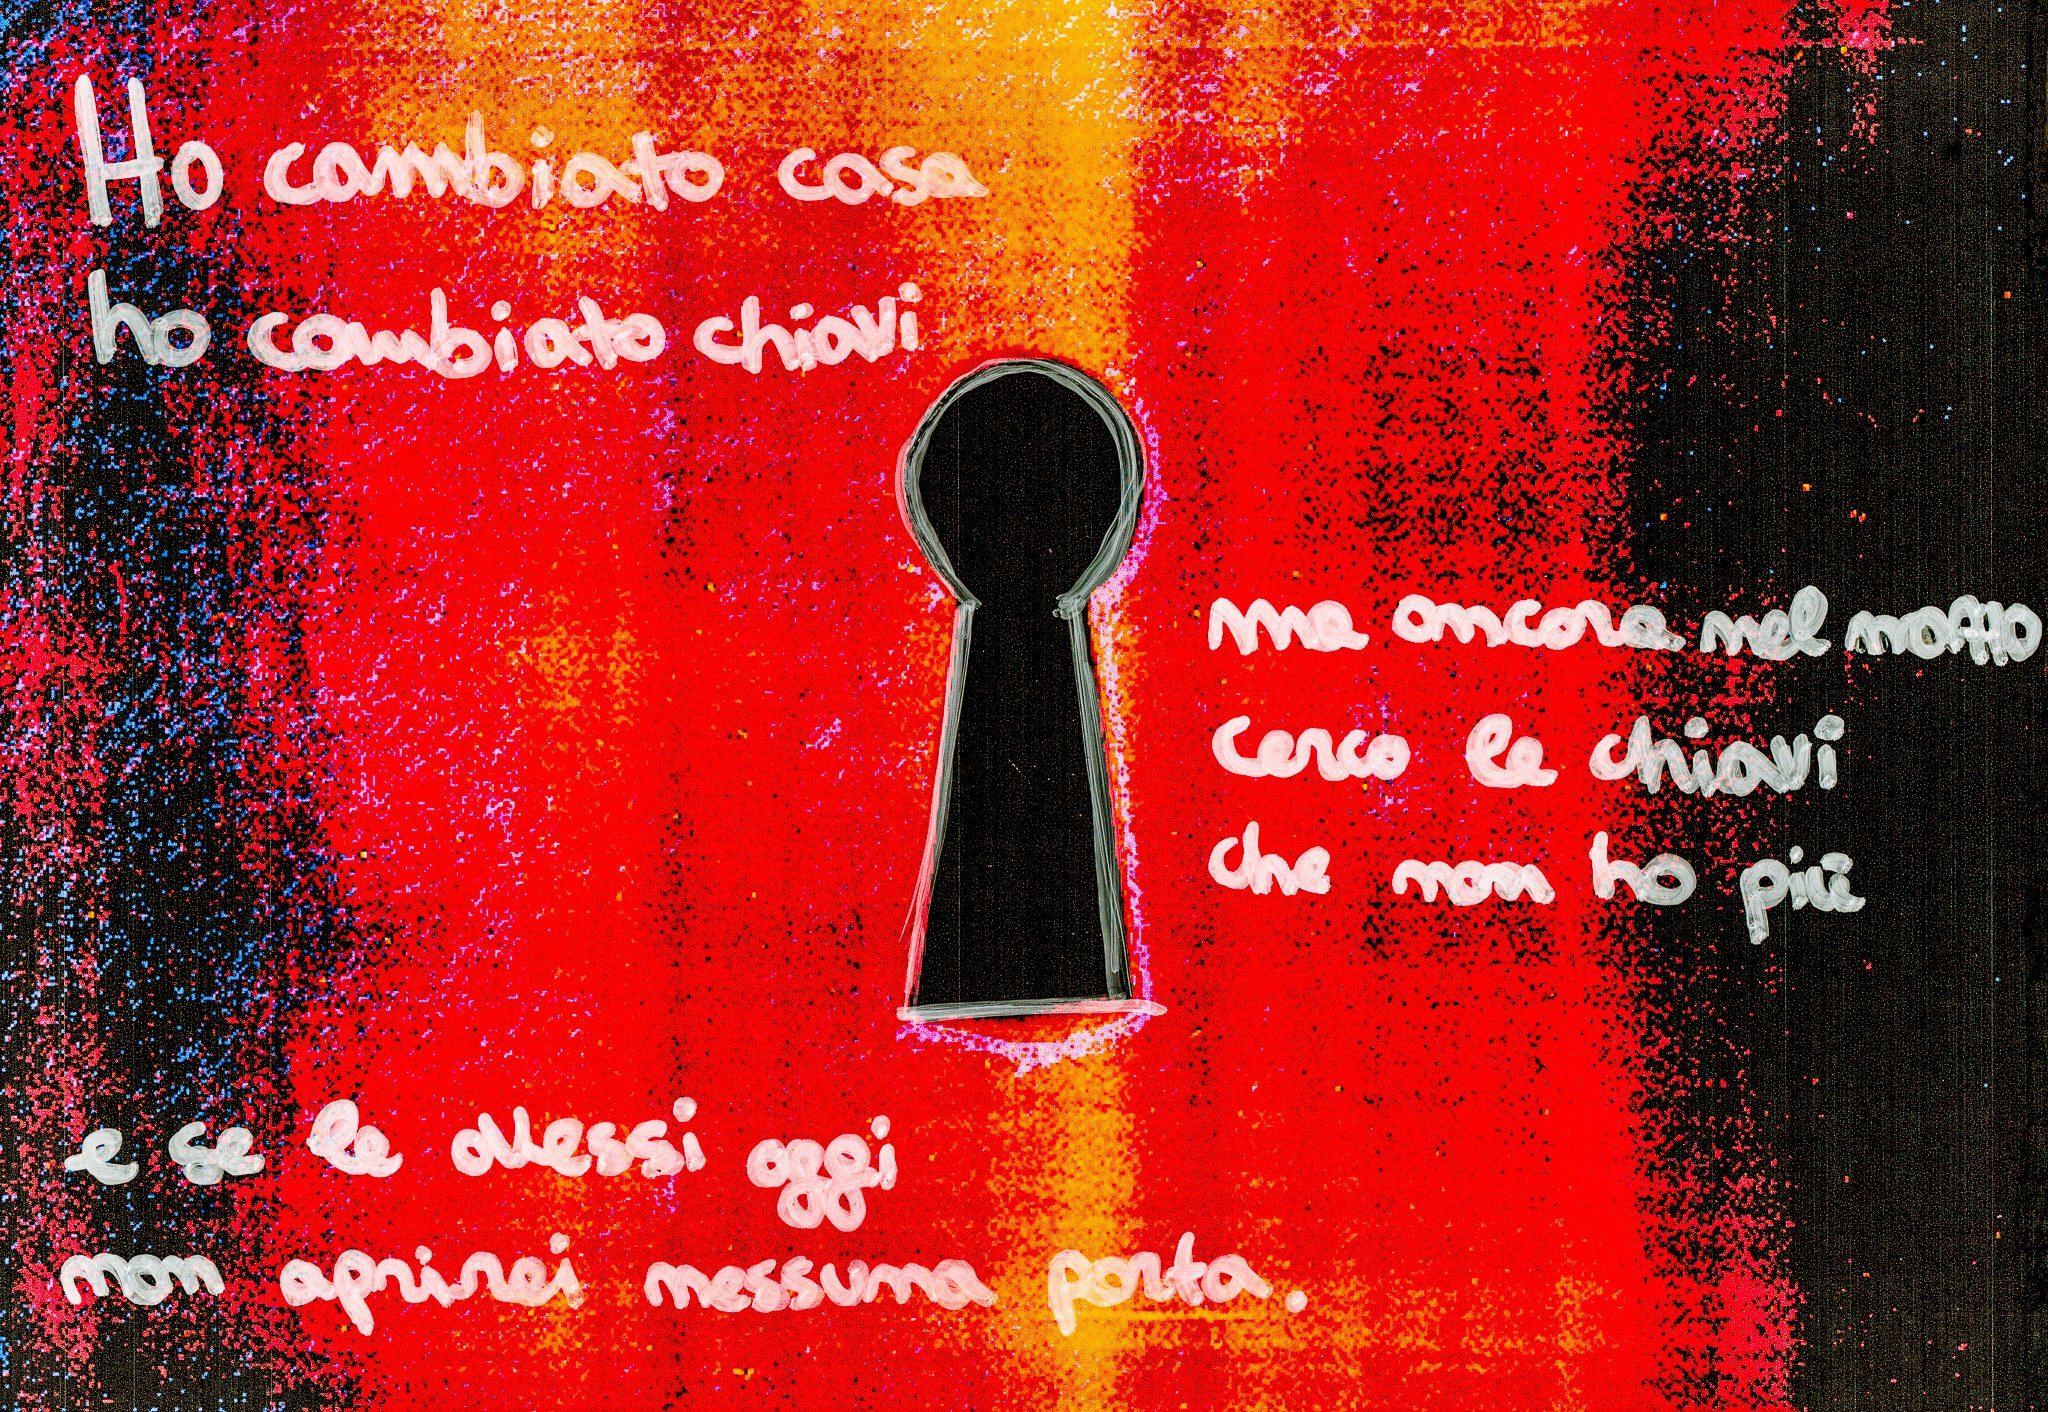 Ho cambiato casa
ho cambiato chiavi
ma ancora nel matto
cerco le chiavi
che non ho più
e se le avessi oggi
non aprirei nessuna porta.